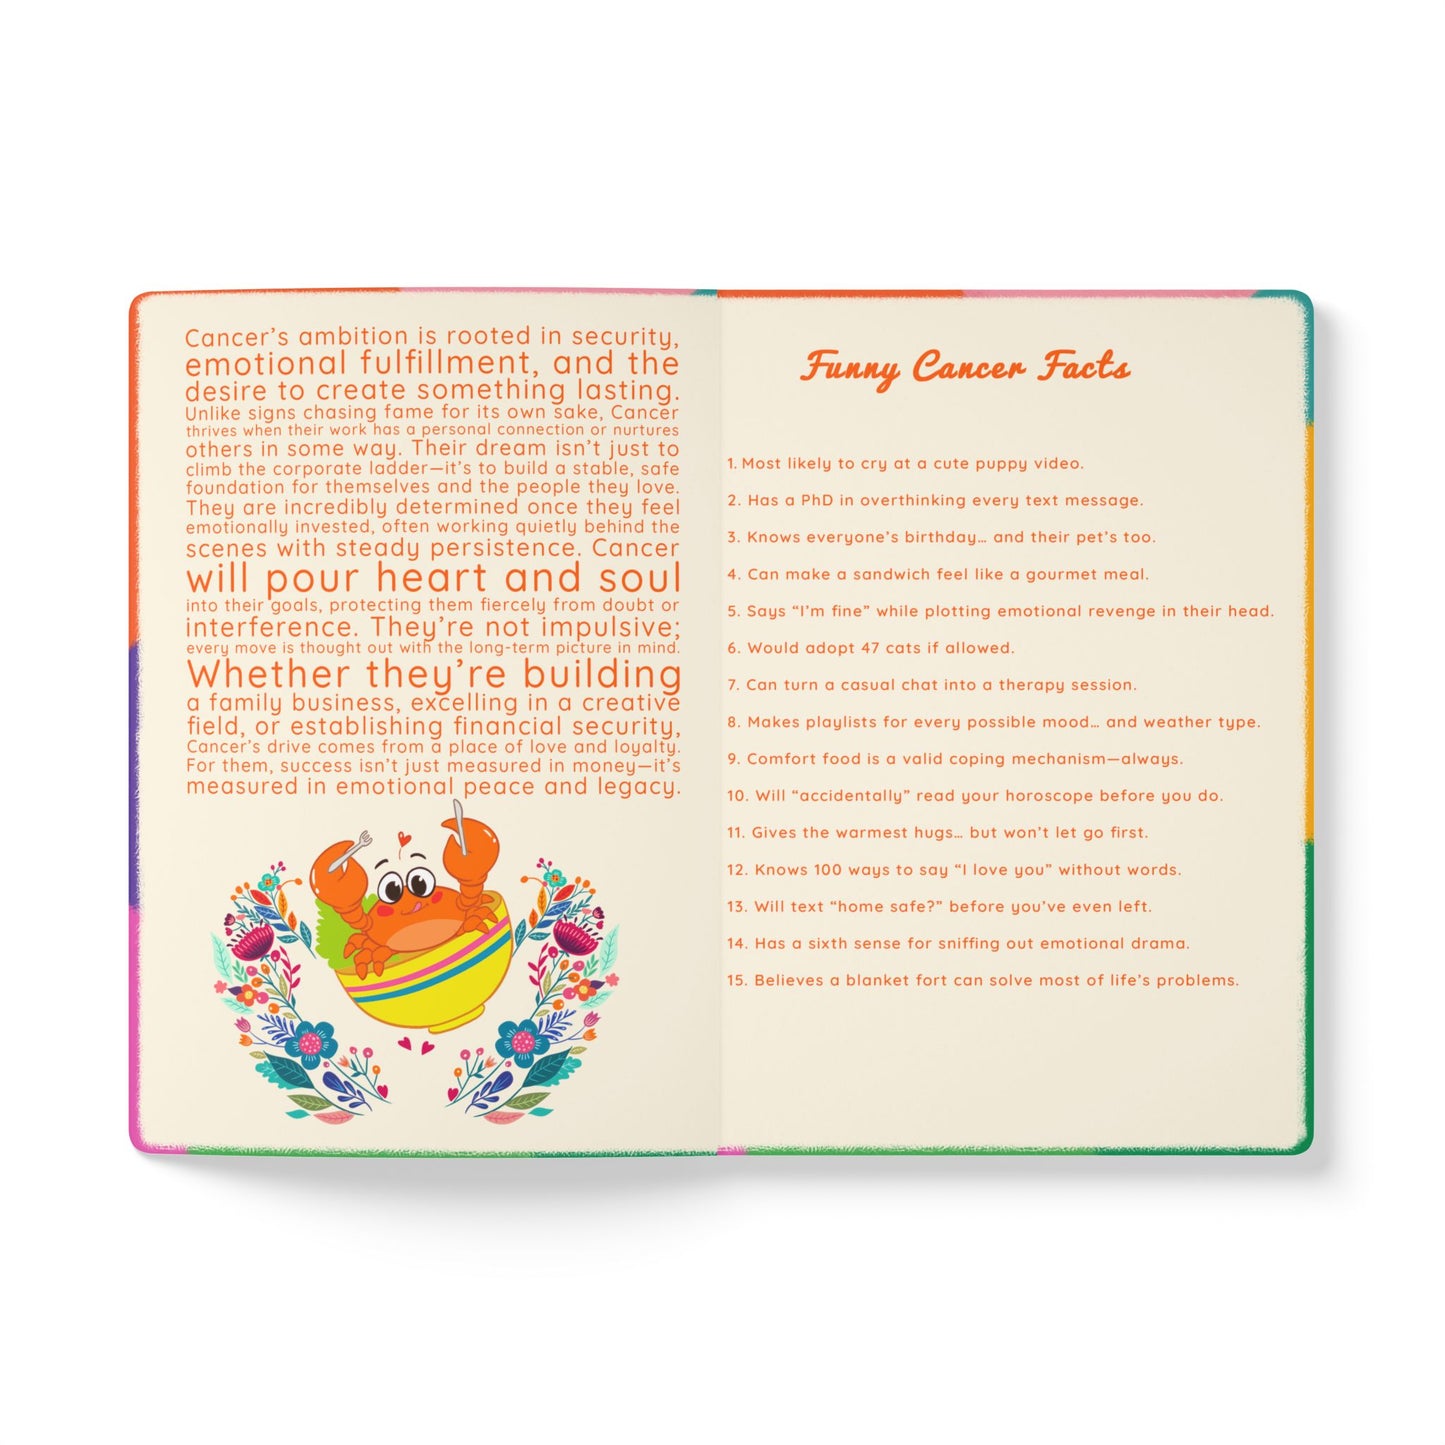 Cancer’s ambition is rooted in security,
emotional fulfillment, and the
desire to create something lasting.
Unlike signs chasing fame for its own sake, Cancer
thrives when their work has a personal connection or nurtures
others in some way. Their dream isn’t just to
climb the corporate ladder—it’s to build a stable, safe
foundation for themselves and the people they love.
They are incredibly determined once they feel
emotionally invested, often working quietly behind the
scenes with steady persistence. Cancer
will pour heart and soul
into their goals, protecting them fiercely from doubt or
interference. They’re not impulsive;
every move is thought out with the long-term picture in mind.
Whether they’re building
a family business, excelling in a creative
field, or establishing financial security,
Cancer’s drive comes from a place of love and loyalty.
For them, success isn’t just measured in money—it’s
measured in emotional peace and legacy.
Funny Cancer Facts
1. Most likely to cry at a cute puppy video.
2. Has a PhD in overthinking every text message.
3. Knows everyone’s birthday… and their pet’s too.
4. Can make a sandwich feel like a gourmet meal.
5. Says “I’m fine” while plotting emotional revenge in their head.
6. Would adopt 47 cats if allowed.
7. Can turn a casual chat into a therapy session.
8. Makes playlists for every possible mood… and weather type.
9. Comfort food is a valid coping mechanism—always.
10. Will “accidentally” read your horoscope before you do.
11. Gives the warmest hugs… but won’t let go first.
12. Knows 100 ways to say “I love you” without words.
13. Will text “home safe?” before you’ve even left.
14. Has a sixth sense for sniffing out emotional drama.
15. Believes a blanket fort can solve most of life’s problems.